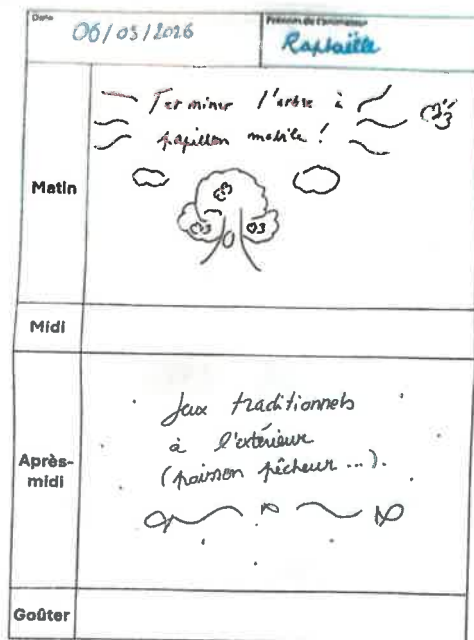 Date
06/05/2026
Prénom de l'animateur
Raphaëlle
Matin
Terminer l'arbre à
papillon mobile !
Midi
Après-
midi
Jeux traditionnels
à l'extérieur
(poisson pêcheur ...).
Goûter